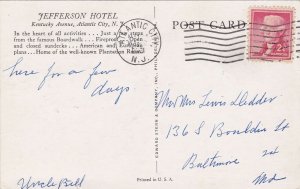 JEFFERSON HOTEL
Kentucky Avenue, Atlantic City, N. J.
In the heart of all activities . . . Just a few steps
from the famous Boardwalk . . . Fireproof . . . Open
and closed sundecks . . . American and European
plans . . . Home of the well-known Plantation Room
here for a few
days
Uncle Bill
POST CARD
ATLANTIC CITY
N.J.
2¢
Mr & Mrs Lewis
136 S Bouldin St
Baltimore 24
Md
Printed in U. S. A.